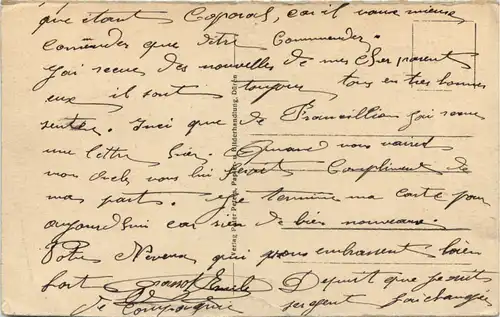 que étant Caporal, car il vaux mieux
comender que d'être Commender.
J'ai recue des nouvelles de mes Cher parent
eux il sont toujours tous en très bonnes
sentée. Insi que de Francillion j'ai recue
une lettre hier. Quand vous
vous lui Compliment de
ma part. Je termine ma carte pour
aujourd'hui car rien de bien nouveaux.
Votre Neveux qui vous embrassent bien
fort Emile Depuit que je suis
de Compagnie sergent j'ai changée
Verlag Peter Papier- u. Bilderhandlung, Düren